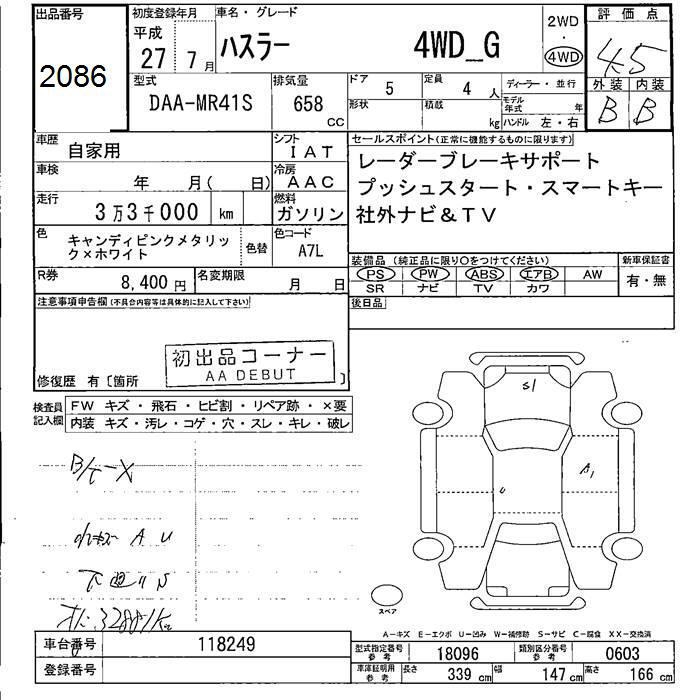 出品番号
2086
初度登録年月
平成
27 年 7 月
車名・グレード
ハスラー 4WD_G
2WD
・
4WD
評価点
4.5
外装 内装
B B
型式
DAA-MR41S
排気量
658
CC
ドア 5
定員 4 人
ディーラー・並行
形状
積載 kg
モデル年式 年
ハンドル 左・右
車歴
自家用
シフト
IAT
車検
年 月( 日)
冷房
AAC
走行
3万3千000 km
燃料
ガソリン
色
キャンディピンクメタリッ
ク×ホワイト
色替
色コード
A7L
R券
8,400 円
名変期限
月 日
セールスポイント(正常に機能するものに限ります)
レーダーブレーキサポート
プッシュスタート・スマートキー
社外ナビ&TV
装備品 (純正品に限り○をつけてください)
PS PW ABS エアB AW
SR ナビ TV カワ
新車保証書
有・無
後日品
注意事項申告欄(不具合内容等は具体的に記入して下さい)
初出品コーナー
AA DEBUT
修復歴 有〔箇所 〕
検査員
記入欄
FW キズ・飛石・ヒビ割・リペア跡・×要
内装 キズ・汚レ・コゲ・穴・スレ・キレ・破レ
A U
S
S1
A1
U
スペア
A-キズ E-エクボ U-凹み W-補修跡 S-サビ C-腐食 XX-交換済
車台番号
118249
登録番号
型式指定番号
参考
18096
類別区分番号
参考
0603
車庫証明用
参考
長さ 339 cm
幅 147 cm
高さ 166 cm